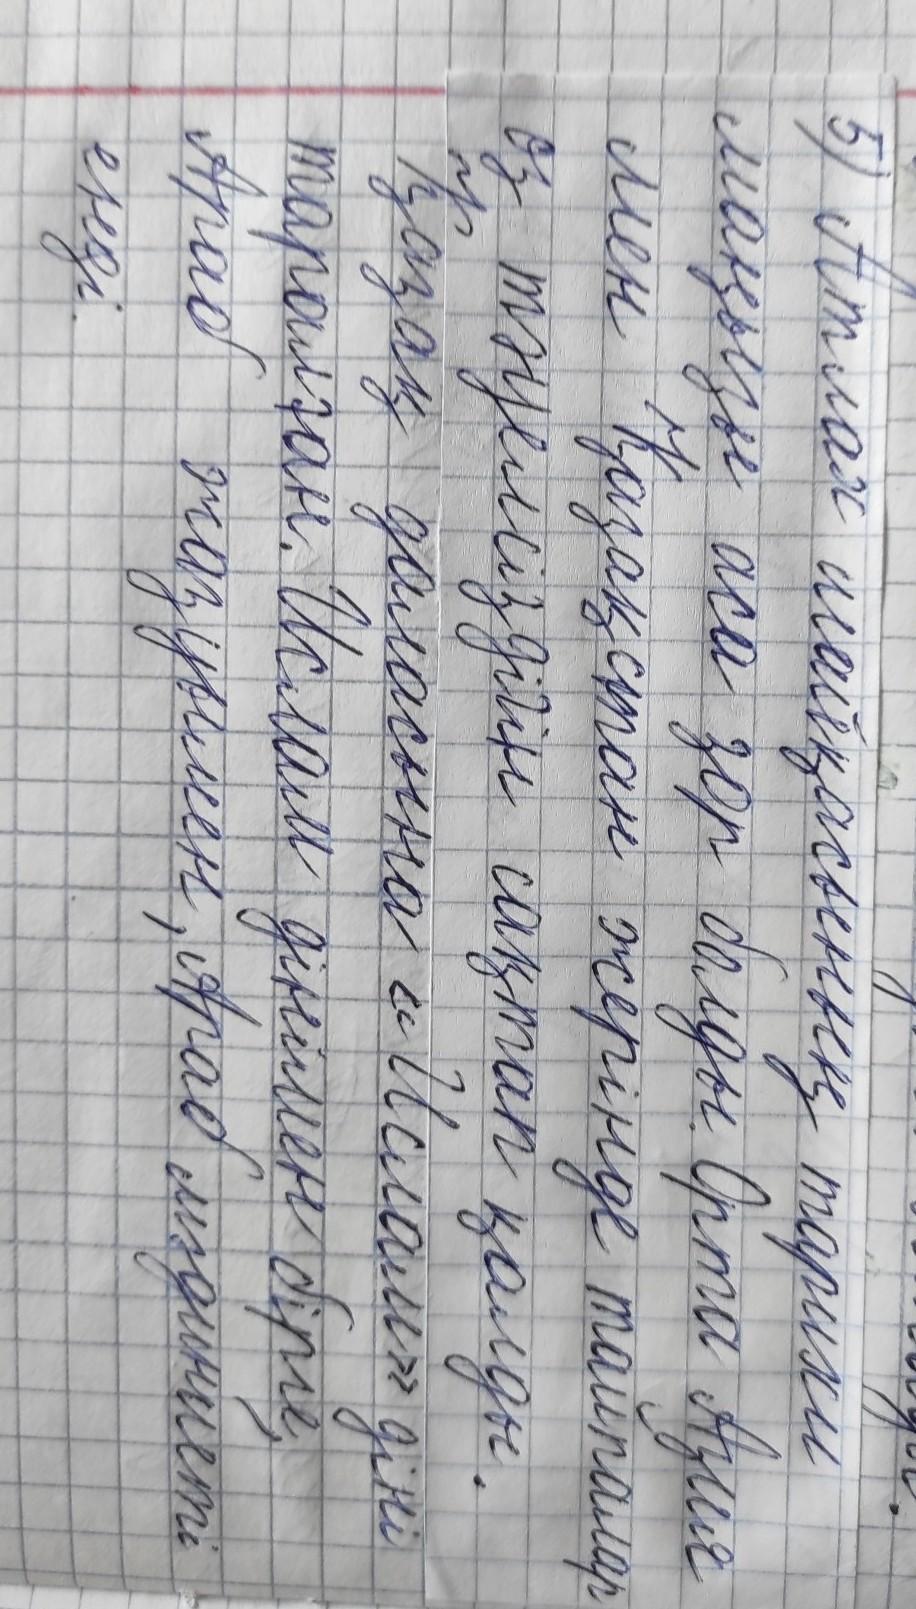 5) Атлах шайқасының тарихи
маңызы аса зор болды. Орта Азия
мен Қазақстан жерінде тайпалар
өз тәуелсіздігін сақтап қалды.
Қазақ даласына «Ислам» діні
таралған. Ислам дінімен бірге,
Араб жазуымен, Араб мәдиниеті
енді.